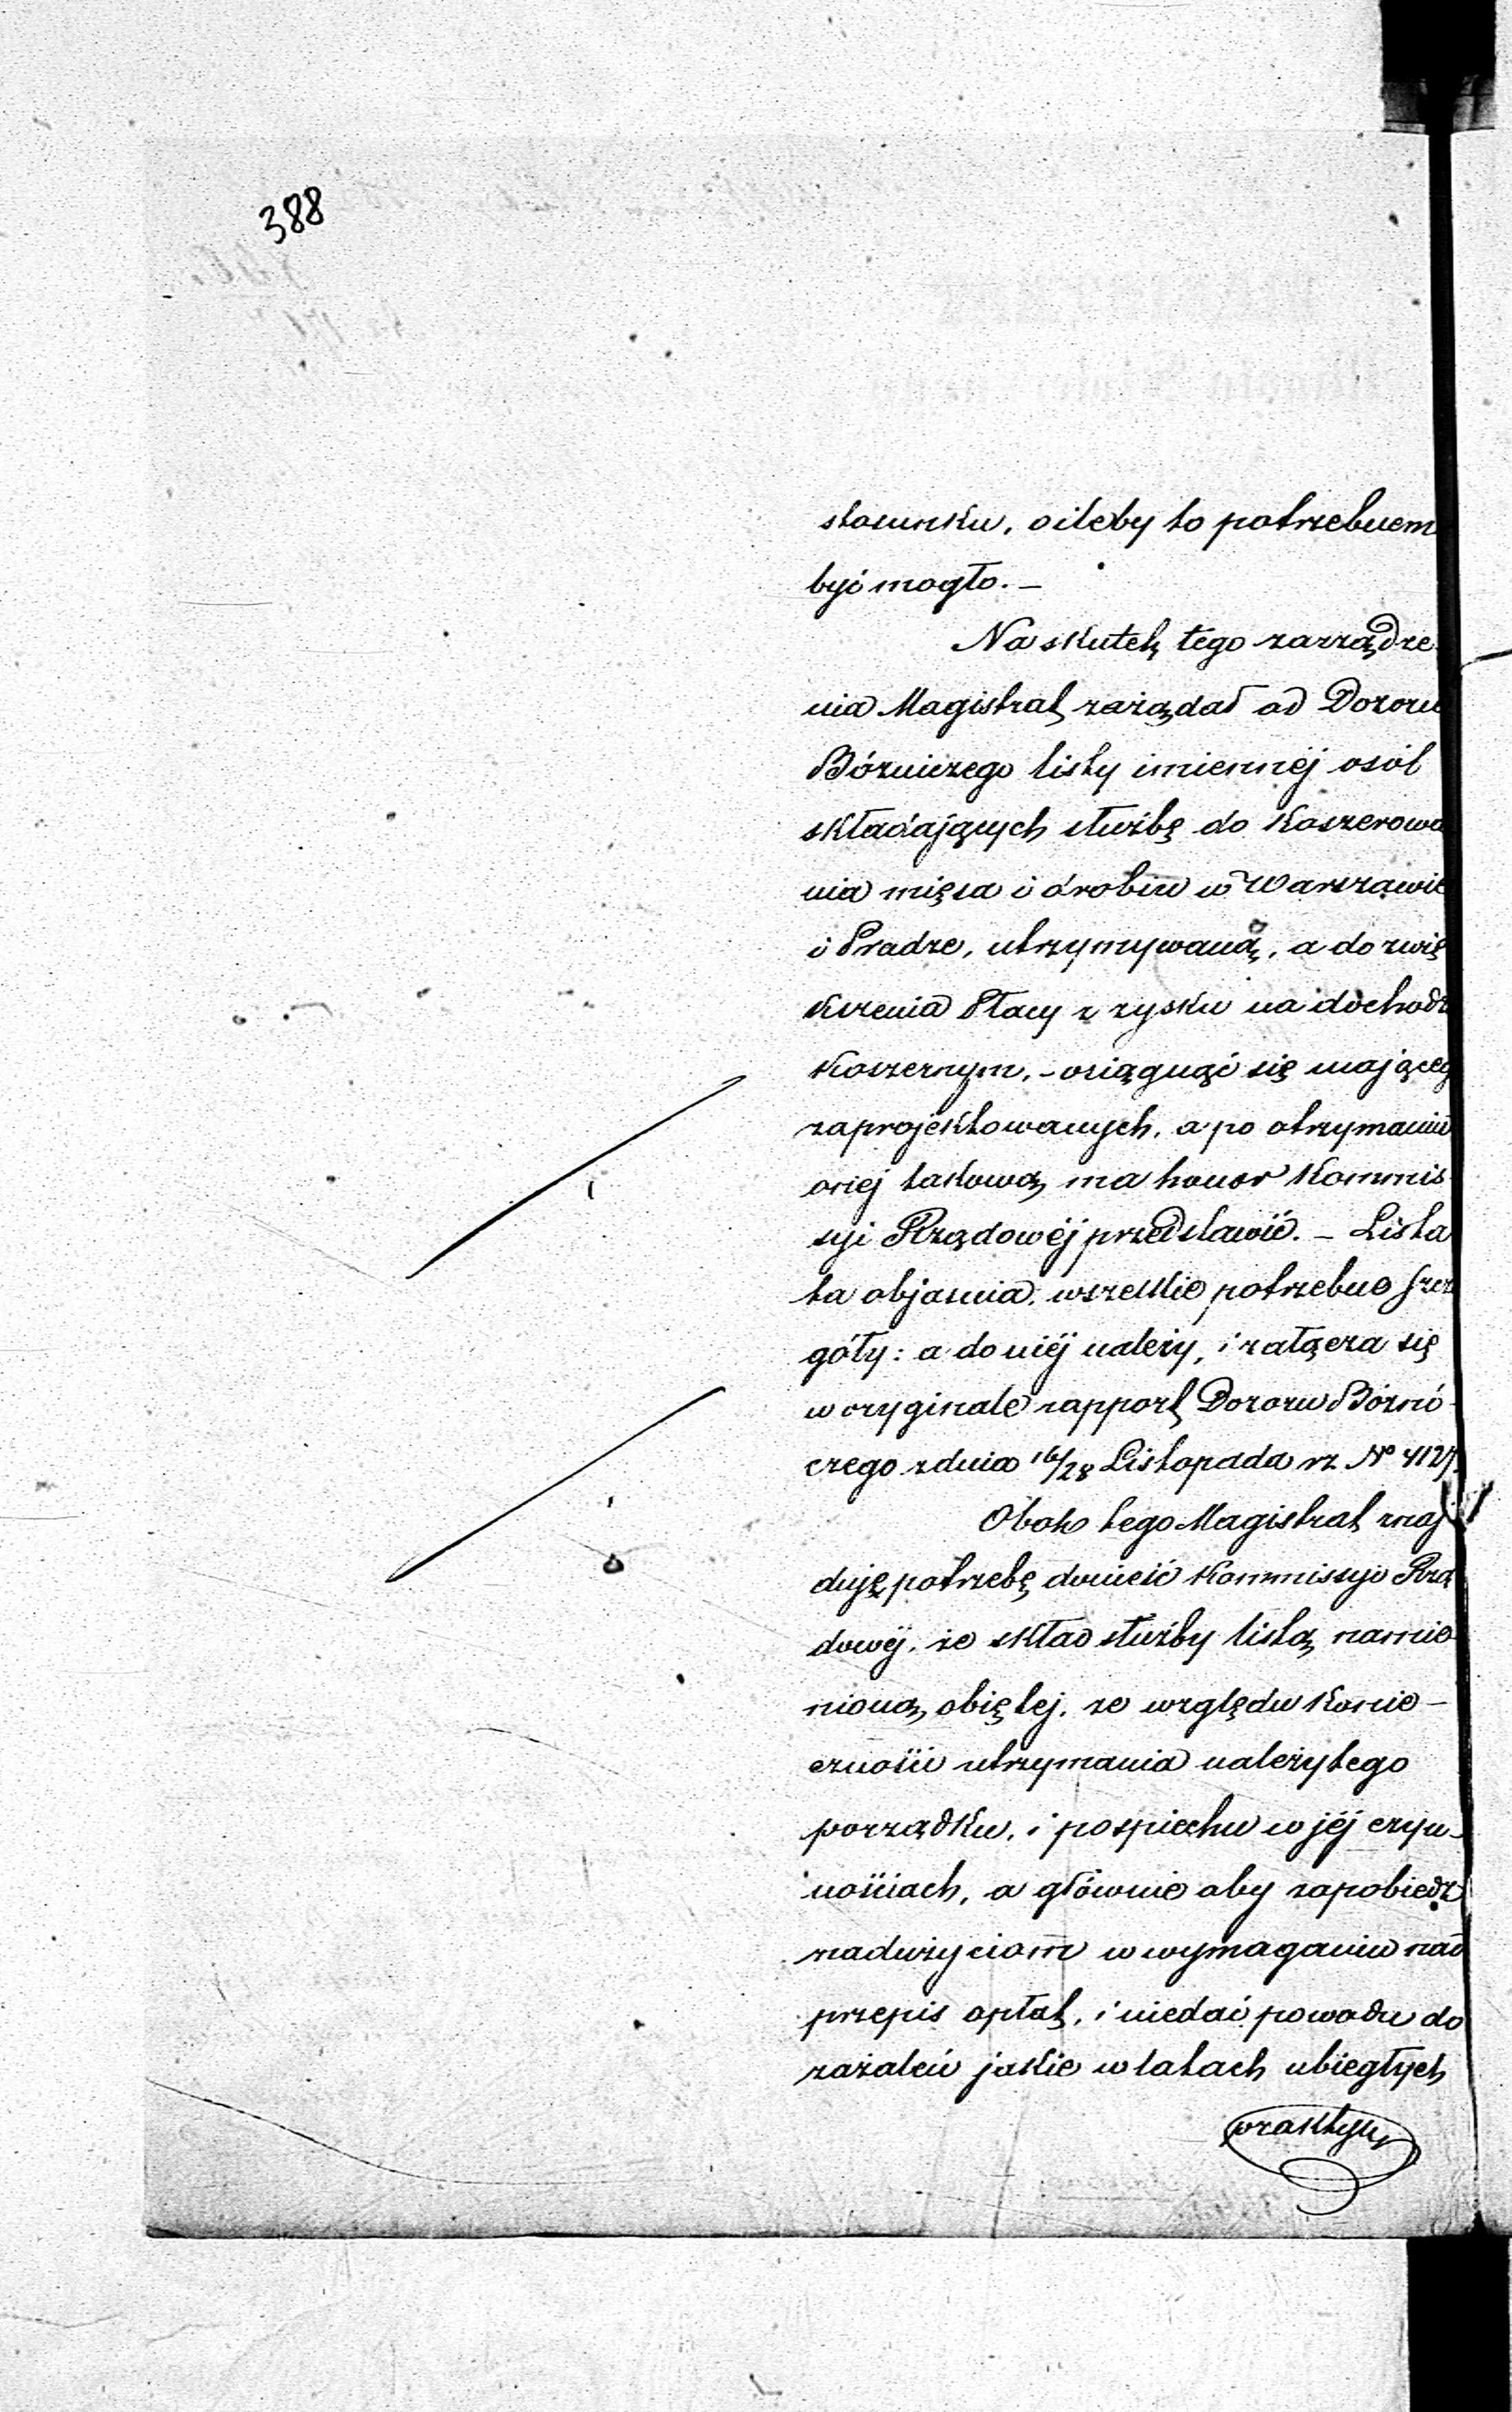 388
stosunku, o ileby to potrzebnem
być mogło. –
Na skutek tego zarządze
nia Magistrat zażądał od Dozoru
Bózniczego listy imiennéj osób
składających służbę do koszerowa
nia mięsa i drobiu w Warszawie
i Pradze, utrzymywaną, a do zwię
kszenia Płacy z zysku na dochodz
koszernym, – osiągnąć się mające
zaprojektowanych, a po otrzymaniu
oniej takową ma honor Kommis
syi Rządowéj przedstawić. – Lista
ta objasnia, wszelkie potrzebne szcze
góły: a do niéj należy, i załącza się
w oryginale rapport Dozoru Bóżni
czego z dnia 16/28 Listopada rz. No 4127.
Obok tego Magistrat znaj
duję potrzebę donieść Kommissyi Rzą
dowéj, że skład służby listą namie
nioną objętej, ze względu konie –
czności utrzymania należytego
porządku, i pospiechu w jéj czyn –
nościach, a głównie aby zapobiedz
nadużyciom w wymaganiu nad
przepis opłat, i niedać powodu do
zażaleń jakie w latach ubiegłych
praktyk